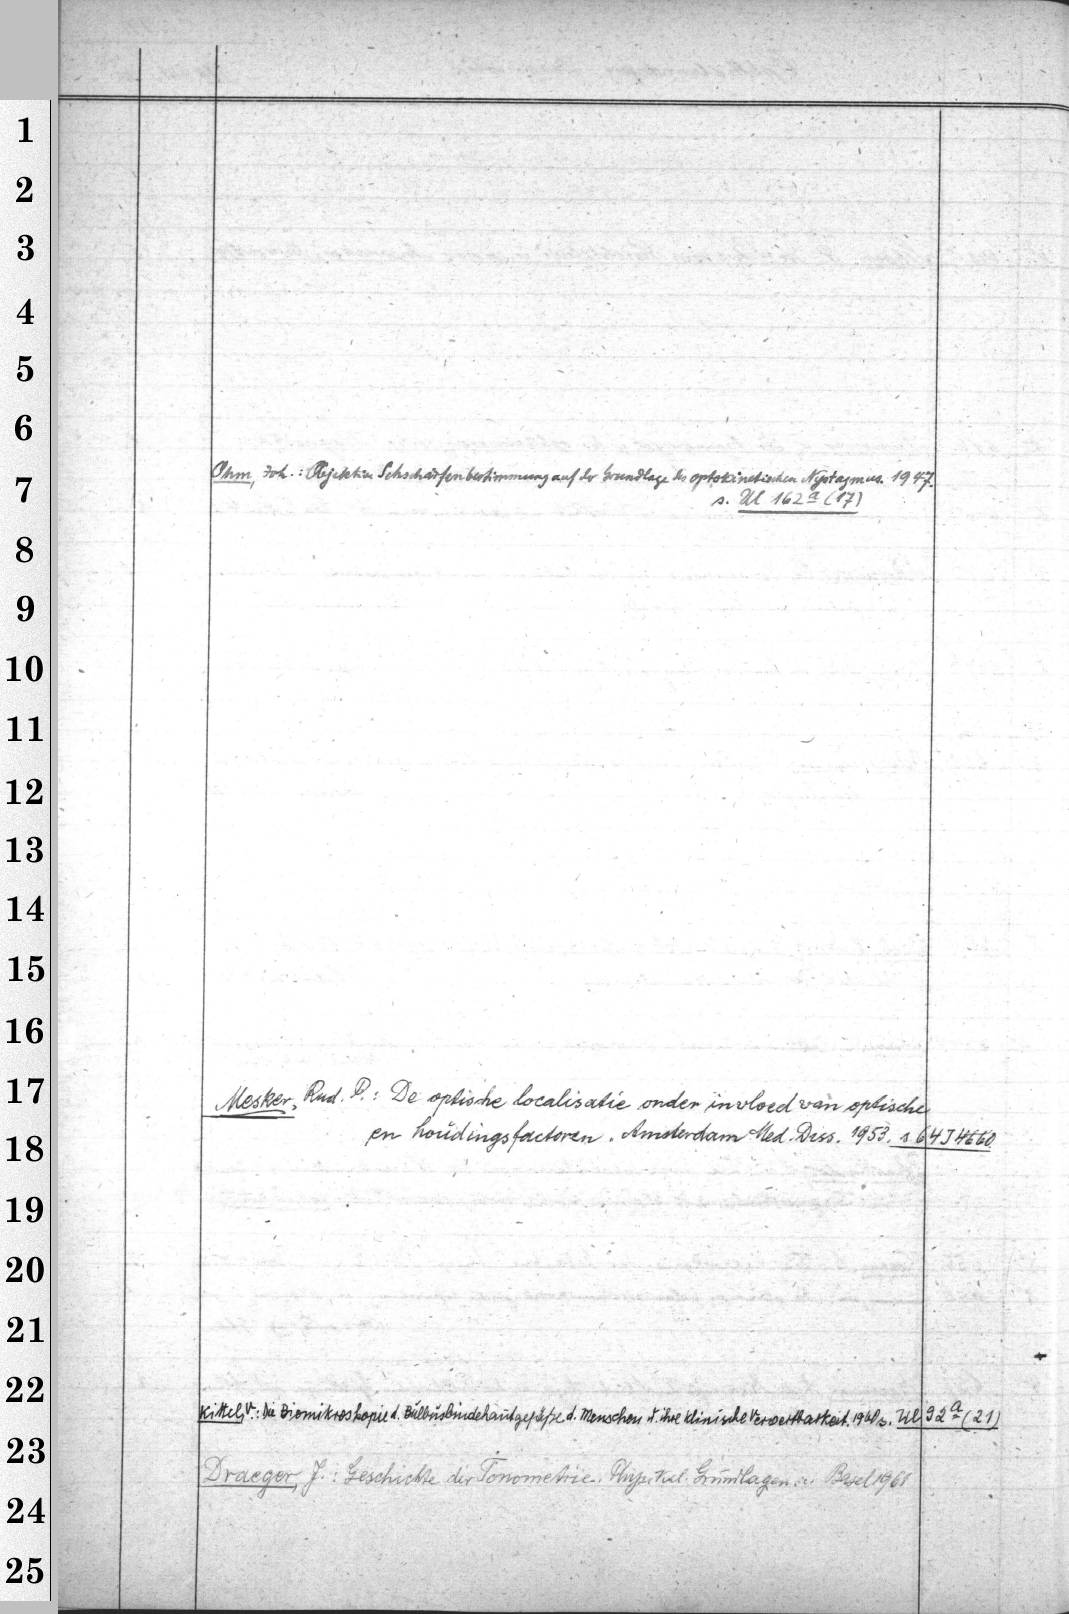 1
2
3
4
5
6
Ohm, Joh.: Objektive Sehschärfenbestimmung auf der Grundlage des optokinetischen Nystagmus. 1947.
7
s. Ul 162a (17)
8
9
10
11
12
13
14
15
16
17
Mesker, Rud. P.: De optische localisatie onder invloed van optische
en houdingsfactoren. Amsterdam Med. Diss. 1953. s. 64 J 4660
18
19
20
21
22
Kittel, V.: Die Biomikroskopie d. Bulbusbindehautgefäße d. Menschen u. ihre klinische Verwertbarkeit. s. Ul 92a (21)
23
Draeger, J.: Geschichte der Tonometrie. Grundlagen Basel 1961
24
25